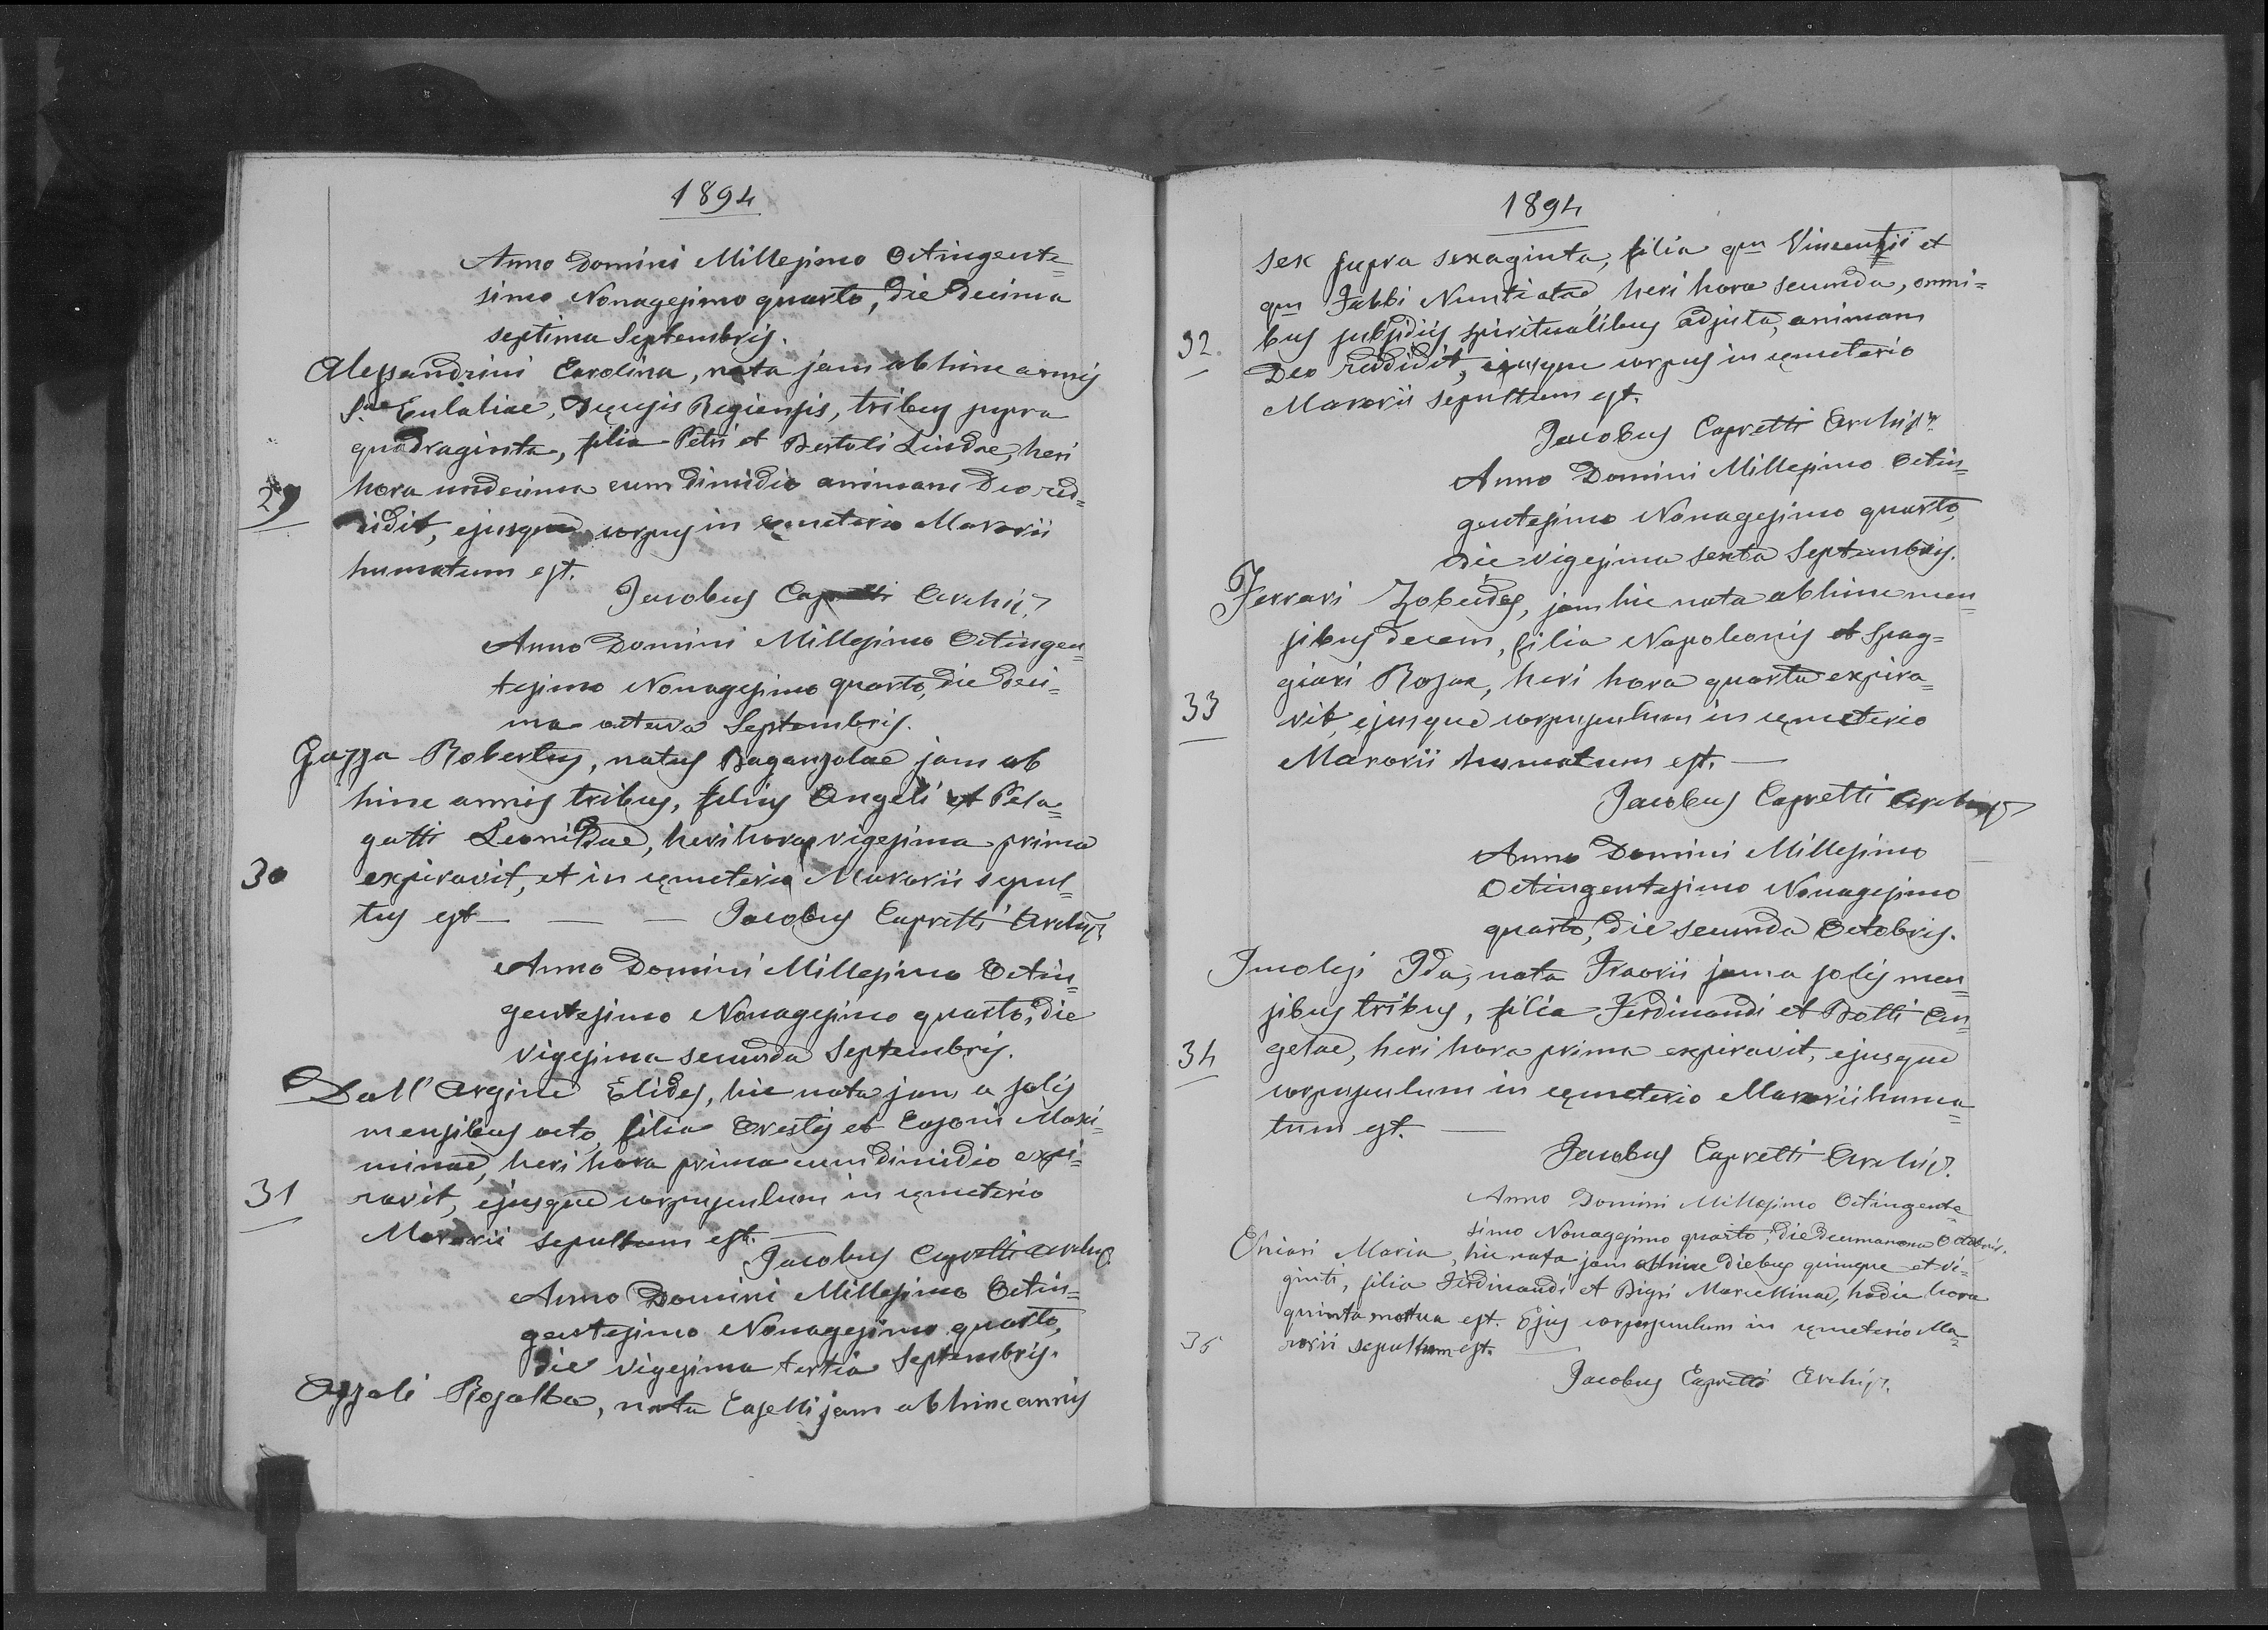 1894
Anno Domini Millesimo Octingente=
simo Nonagesimo quarto, die decima
septima Septembris.
Alessandrini Carolina, nata jam abhinc annis
S.ae Eulaliae, Dięcesis Regiensis, tribus supra
quadraginta, filia Petri et Bertoli Lindae, heri
29 hora undecima cum dimidio animam Deo red=
didit, ejusque corpus in cęmeterio Marorii
humatum est.
Jacobus Capretti Archip.
Anno Domini Millesimo Octingen=
tesimo Nonagesimo quarto, die deci=
ma octava Septembris.
Gazza Robertus, natus Baganzolae jam ab
hinc annis tribus, filius Angeli et Pela=
gatti Leonildae, heri hora vigesima prima
30 expiravit, et in cęmeterio Marorii sepul=
tus est — — Jacobus Capretti Archip.
Anno Domini Millesimo Octin=
gentesimo Nonagesimo quarto, die
vigesima secunda Septembris.
Dall'Argine Elides, hic nata jam a solis
mensibus octo, filia Orestis et Casoni Maxi=
minae, heri hora prima cum dimidio expi=
31 ravit, ejusque corpusculum in cęmeterio
Marorii sepultum est. —
Jacobus Capretti Archip.
Anno Domini Millesimo Octin=
gentesimo Nonagesimo quarto,
die vigesima tertia Septembris.
Azzali Rosalba, nata Caselli jam abhinc annis
1894
sex supra sexaginta, filia qm Vincentii et
qm Fabbi Nuntiatae, heri hora secunda, omni=
32. bus subsidiis spiritualibus adjuta, animam
Deo reddidit, ejusque corpus in cęmeterio
Marorii sepultum est.
Jacobus Capretti Archip.
Anno Domini Millesimo Octin=
gentesimo Nonagesimo quarto,
die vigesima sexta Septembris.
Ferrari Zobeides, jam hic nata abhinc men=
sibus decem, filia Napoleonis et Spag=
giari Rosae, heri hora quarta expira=
33 vit, ejusque corpusculum in cęmeterio
Marorii humatum est. —
Jacobus Capretti Archip.
Anno Domini Millesimo
Octingentesimo Nonagesimo
quarto, die secunda Octobris.
Imolesi Ida, nata Fraorii jam a solis men=
sibus tribus, filia Ferdinandi et Botti An=
34 gelae, heri hora prima expiravit, ejusque
corpusculum in cęmeterio Marorii huma=
tum est. —
Jacobus Capretti Archip.
Anno Domini Millesimo Octingente=
simo Nonagesimo quarto, die decimanona Octobris.
Chiari Maria, hic nata jam abhinc diebus quinque et vi=
ginti, filia Ferdinandi et Bigri Marcellinae, hodie hora
quinta mortua est. Ejus corpusculum in cęmeterio Ma=
35 rorii sepultum est. —
Jacobus Capretti Archip.